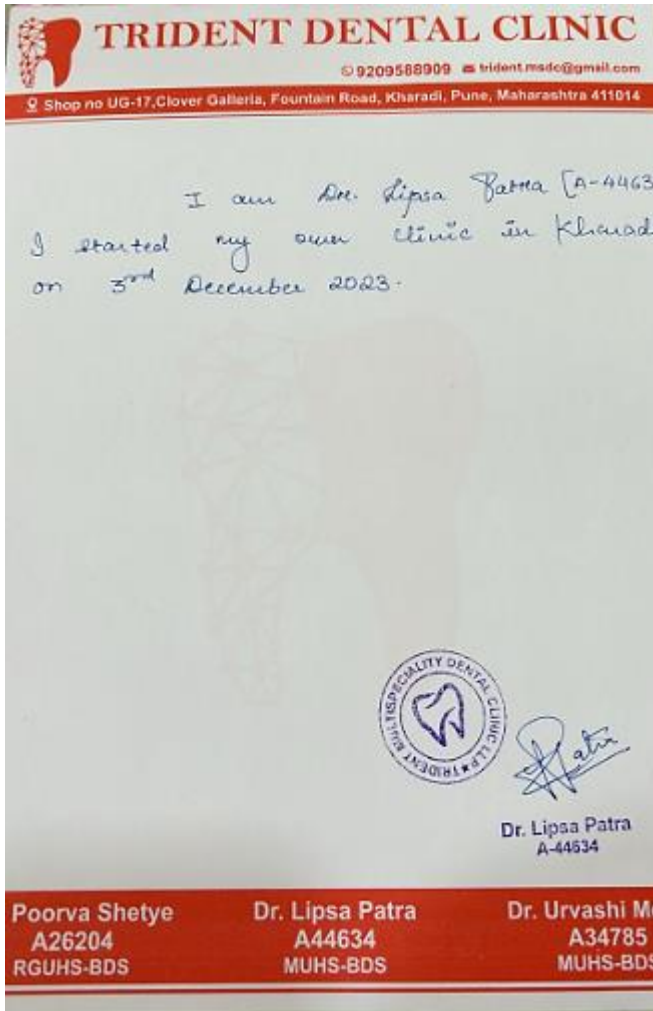 TRIDENT DENTAL CLINIC
9209588909 trident.msdc@gmail.com
Shop no UG-17,Clover Galleria, Fountain Road, Kharadi, Pune, Maharashtra 411014
I am Dr. Lipsa Patra [A-4463
I started my own clinic in Kharad
on 3rd December 2023.
TRIDENT MULTISPECIALITY DENTAL CLINIC LLP ★
Patra
Dr. Lipsa Patra
A-44634
Poorva Shetye Dr. Lipsa Patra Dr. Urvashi M
A26204 A44634 A34785
RGUHS-BDS MUHS-BDS MUHS-BDS